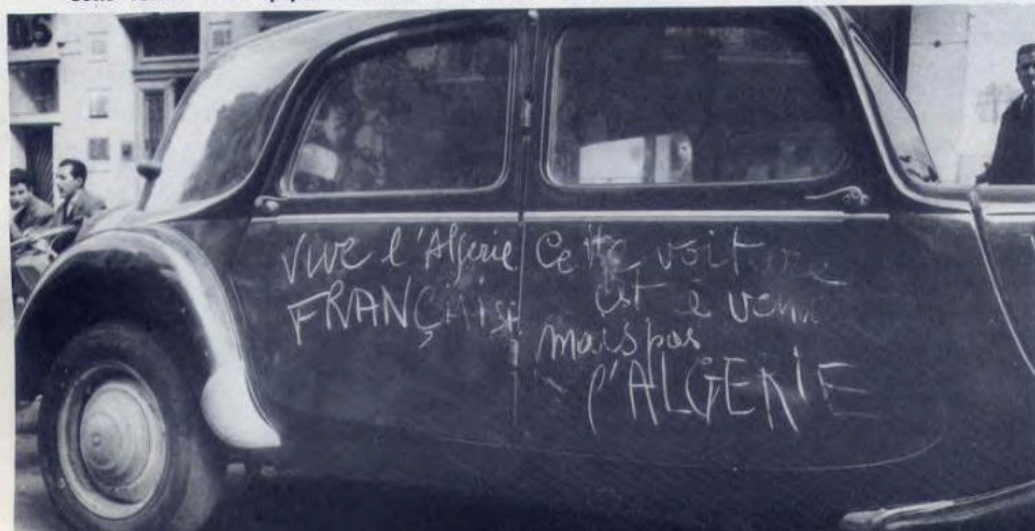 Vive l'Algerie
FRANÇAISE
Cette voiture
est à vend
mais pas
l'ALGERIE